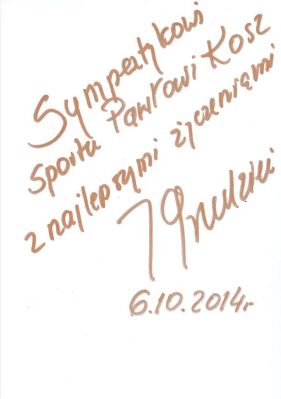 Sympatykowi
Sportu Pawłowi Kosz
z najlepszymi życzeniami
6.10.2014r.